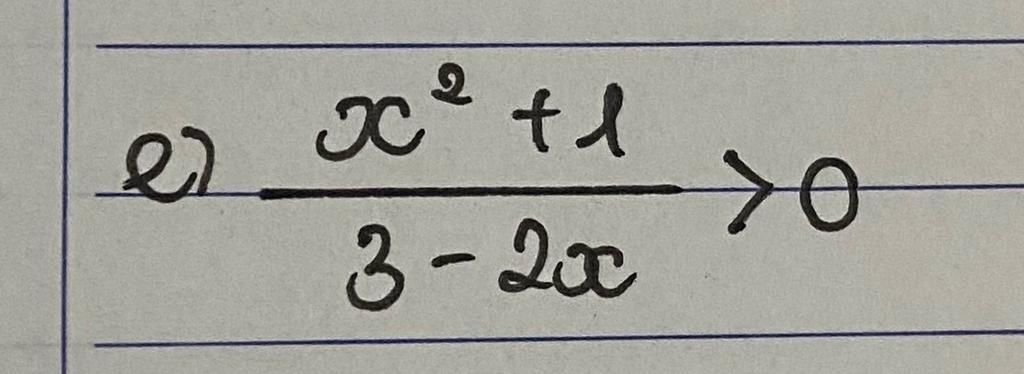 e) \frac{x^2 + 1}{3 - 2x} > 0